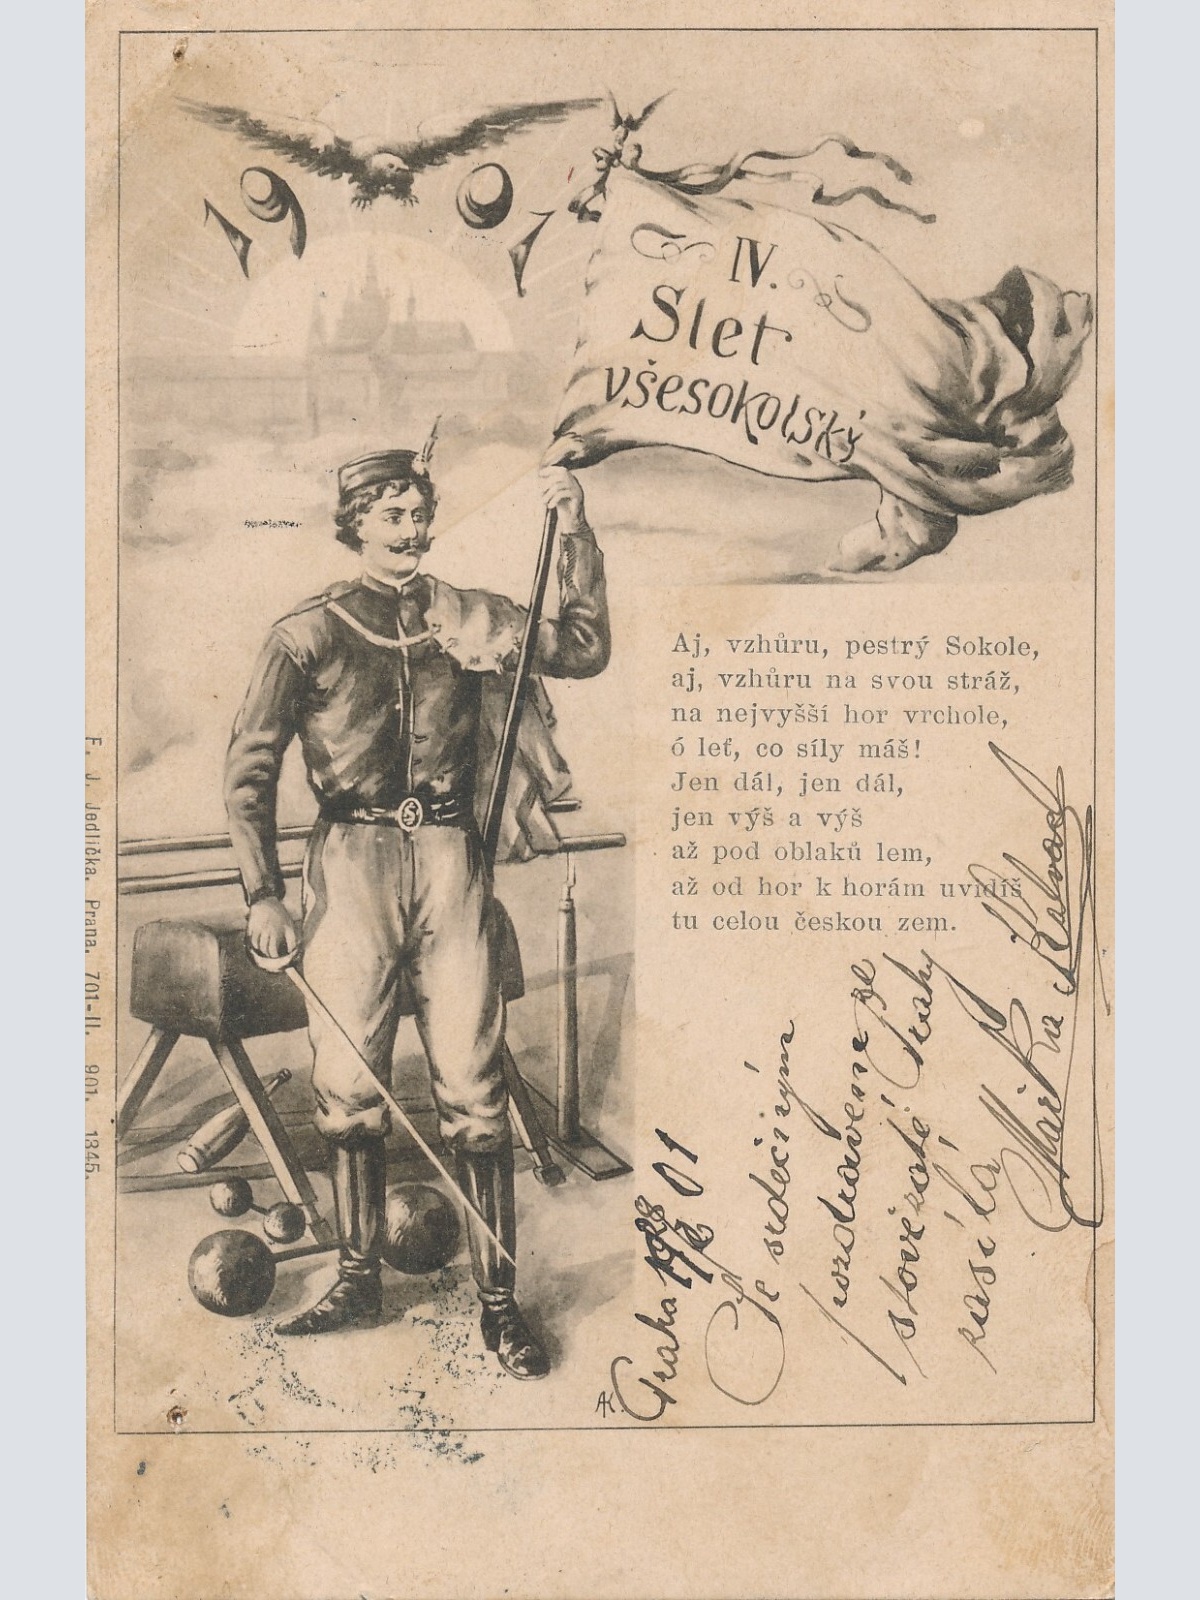 1901
IV.
Slet
všesokolský
Aj, vzhůru, pestrý Sokole,
aj, vzhůru na svou stráž,
na nejvyšší hor vrchole,
ó leť, co síly máš!
Jen dál, jen dál,
jen výš a výš
až pod oblaků lem,
až od hor k horám uvidíš
tu celou českou zem.
F. J. Jedlička, Praha, 701-II. 901. 1345.
S
AK.
Praha 01
Se srdečným
pozdravem ze
stověžaté Prahy
zasílá